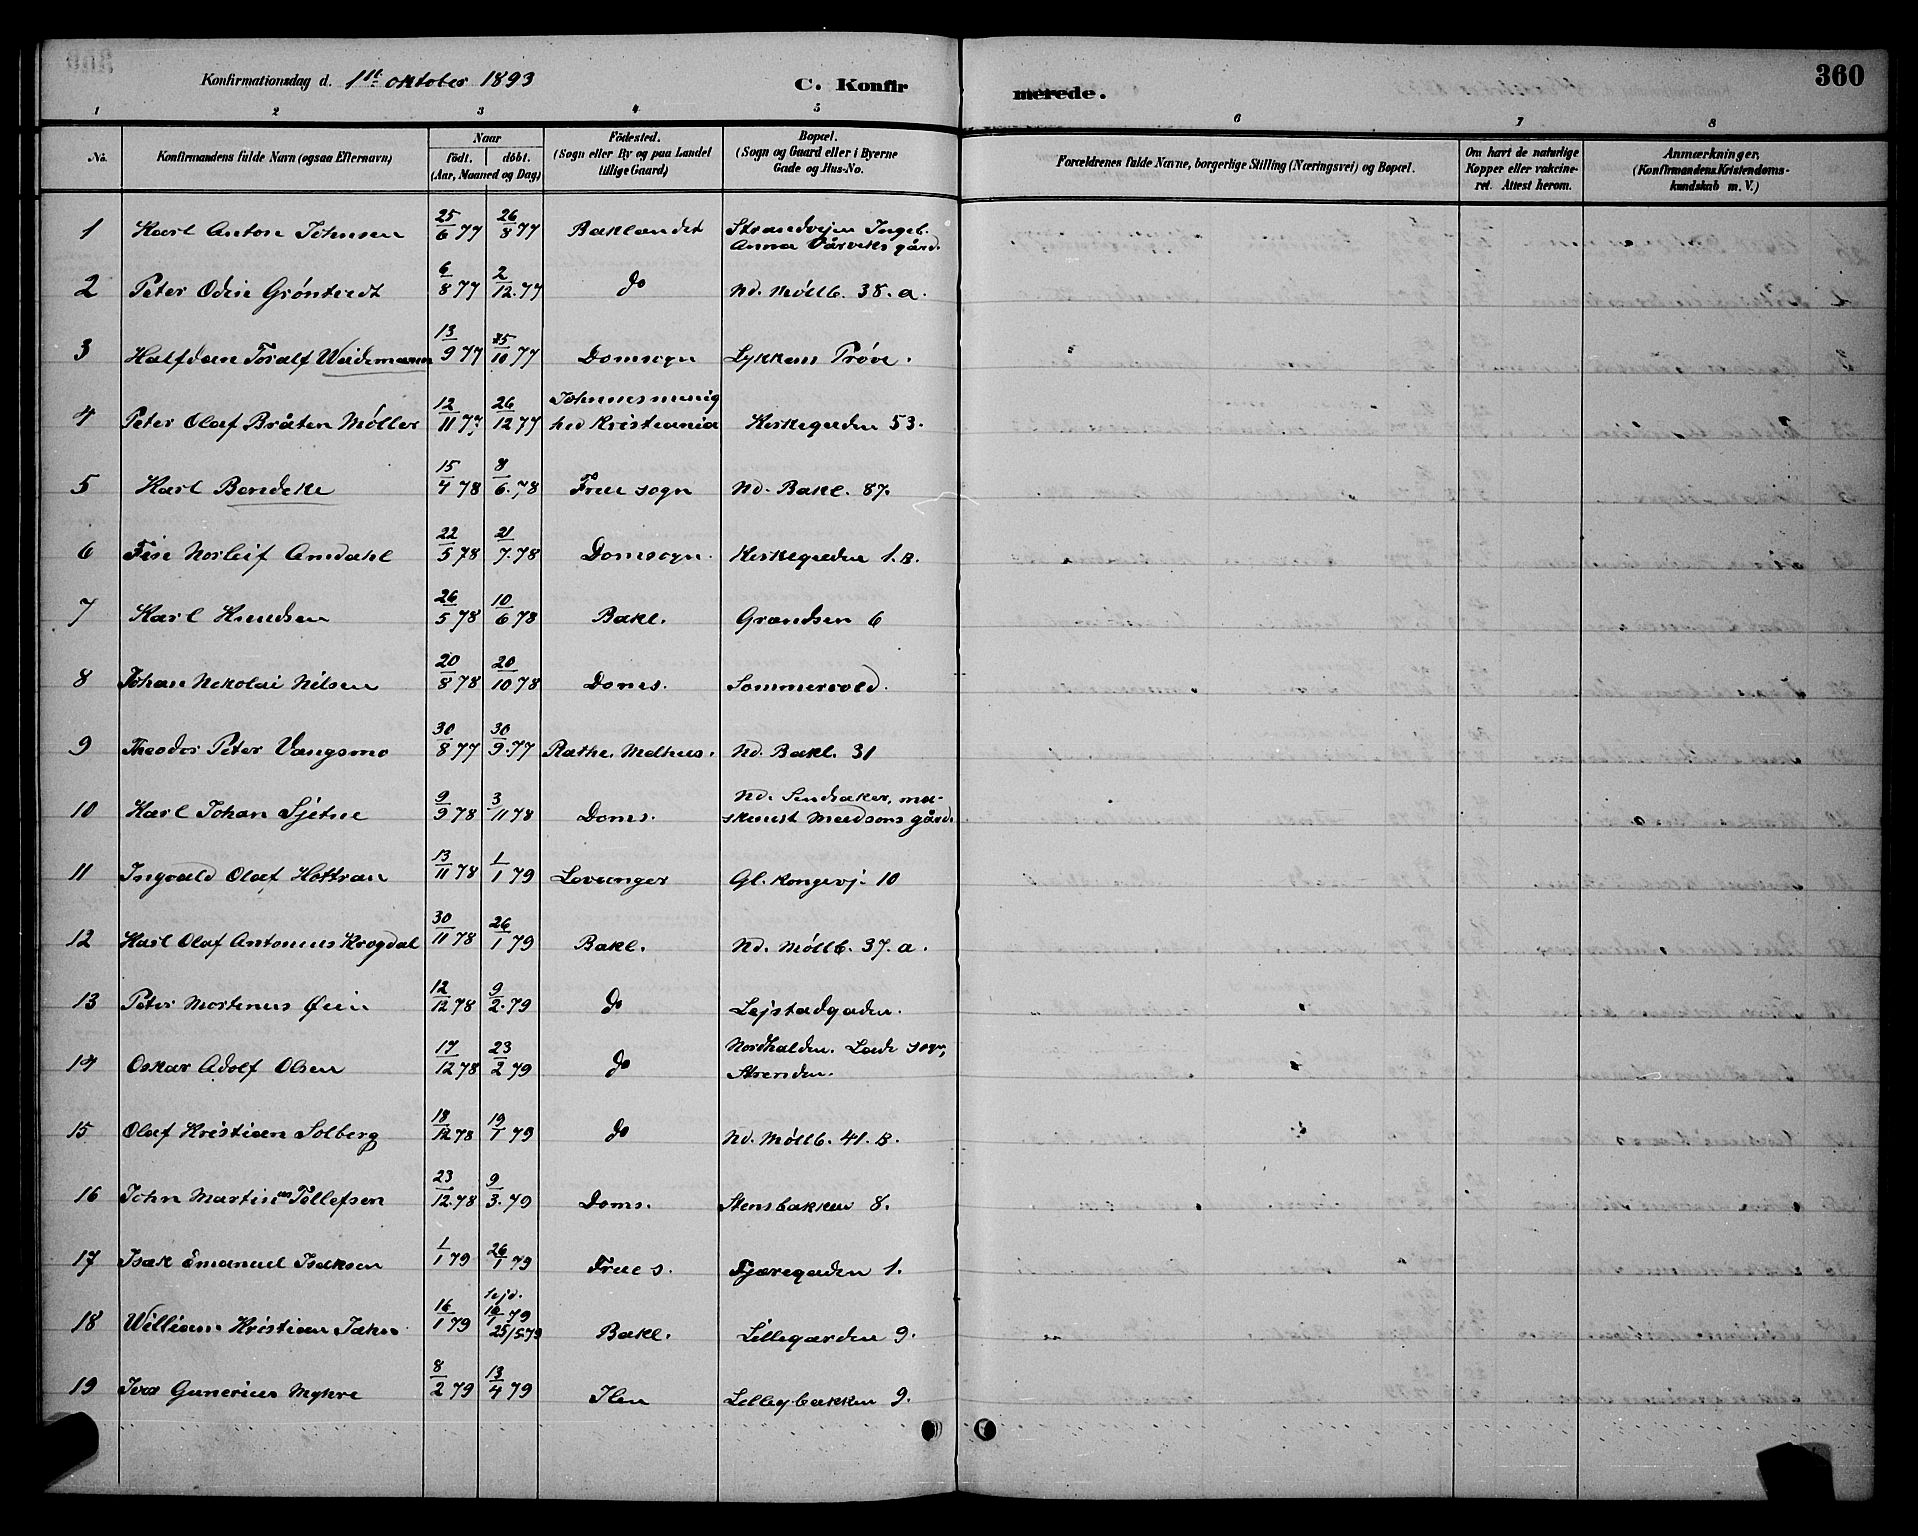 360
Konfirmationsdag d. 1ste oktober 1893
C. Konfirmerede.
1 2 3 4 5 6 7 8
No.
Konfirmandens fulde Navn (ogsaa Efternavn)
Naar
födt. döbt.
(Aar, Maaned og Dag)
Födested.
(Sogn eller By og paa Landet
tillige Gaard)
Bopæl.
(Sogn og Gaard eller i Byerne
Gade og Hus-No.
Forældrenes fulde Navne, borgerlige Stilling (Næringsvei) og Bopæl.
Om havt de naturlige
Kopper eller vakcine-
ret. Attest herom.
Anmærkninger,
(Konfirmandens Kristendoms-
kundskab m. V.)
1 Karl Anton Johnsen 25/6 77 26/8 77 Baklandet Strandvejen Ingeb.
Anna Vårviks gård
2 Peter Odin Gröntvedt 6/8 77 2/12. 77 do Nd. Möllb. 38. a.
3 Halfdan Toralf Weidemann 13/9 77 25/10 77 Domsogn Lykkens Pröve.
4 Peter Olaf Bråten Möller 12/11 77 26/12 77
ved Kristiania Kirkegaden 53.
5 Karl Benedeke 15/4 78 8/6. 78 Frue sogn Nd. Bakl. 87.
6 Norleif Amdahl 22/5 78 21/7. 78 Domsogn. Kirkegaden 1. B.
7 Karl Knudsen 26/5 78 10/6 78 Bakl. Grændsen 6
8 Johan Nikolai Nilsen 20/8 78 20/10 78 Doms. Sommervold.
9 Theodor Peter Vangsmo 30/8 77 30/9. 77 Melhus. Nd. Bakl. 31
10 Karl Johan Sjetne 9/9 78 3/11 78 Doms. Nd. ma-
skinist Madsons gård.
11 Ingvald Olaf Hottran 13/11 78 1/1 79 Levanger Gl. kongevj. 10
12 Karl Olaf Antonius Krogdal 30/11 78 26/1 79 Bakl. Nd. Möllb. 37. a.
13 Peter Martinus Öien 12/12 78 9/2. 79 do Lejstadgaden.
14 Oskar Adolf Olsen 17/12 78 23/2 79 do Nordhalden. Lade sogn,
Stranden.
15 Olaf Kristian Solberg 18/12 78 19/1 79 do Nd. Möllb. 41. B.
16 John Martin Tellefsen 23/12. 78 9/3. 79 Doms. Stensbakken 8.
17 Isak Emanuel Isaksen 1/1 79 26/1 79 Frue s. Fjæregaden 1.
18 William Kristian 16/1 79 79
25/5 79 Bakl. Lillegården 9.
19 Gunerius Myhre 8/2 79 13/4 79 Ilen 9.